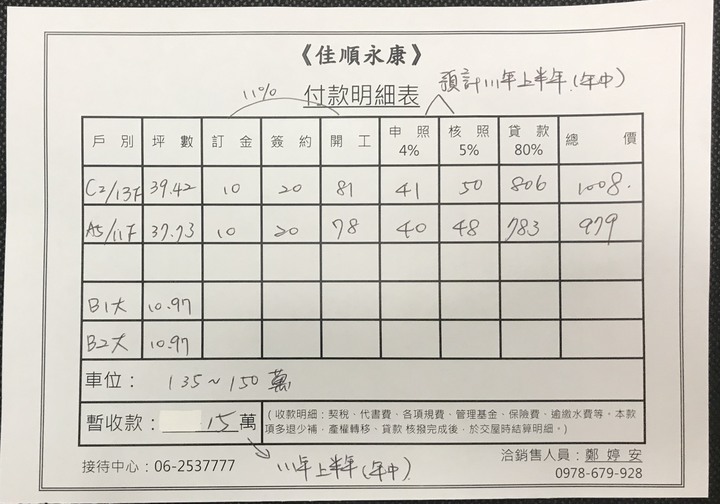 《佳順永康》
11% 預計111年上半年(年中)
付款明細表
戶別 坪數 訂金 簽約 開工 申照 4% 核照 5% 貸款 80% 總價
C2/13F 39.42 10 20 81 41 50 806 1008.
A5/11F 37.73 10 20 78 40 48 783 979
B1大 10.97
B2大 10.97
車位: 135~150萬
暫收款: 15萬 (收款明細:契稅、代書費、各項規費、管理基金、保險費、逾繳水費等。本款
項多退少補,產權轉移、貸款 核撥完成後,於交屋時結算明細。)
接待中心:06-2537777 111年上半年(年中) 洽銷售人員:鄭婷安
0978-679-928